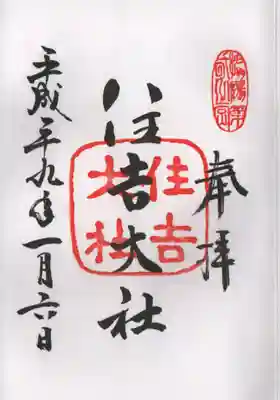 奉拝
住吉大社
住吉
大社
平成二十九年一月六日